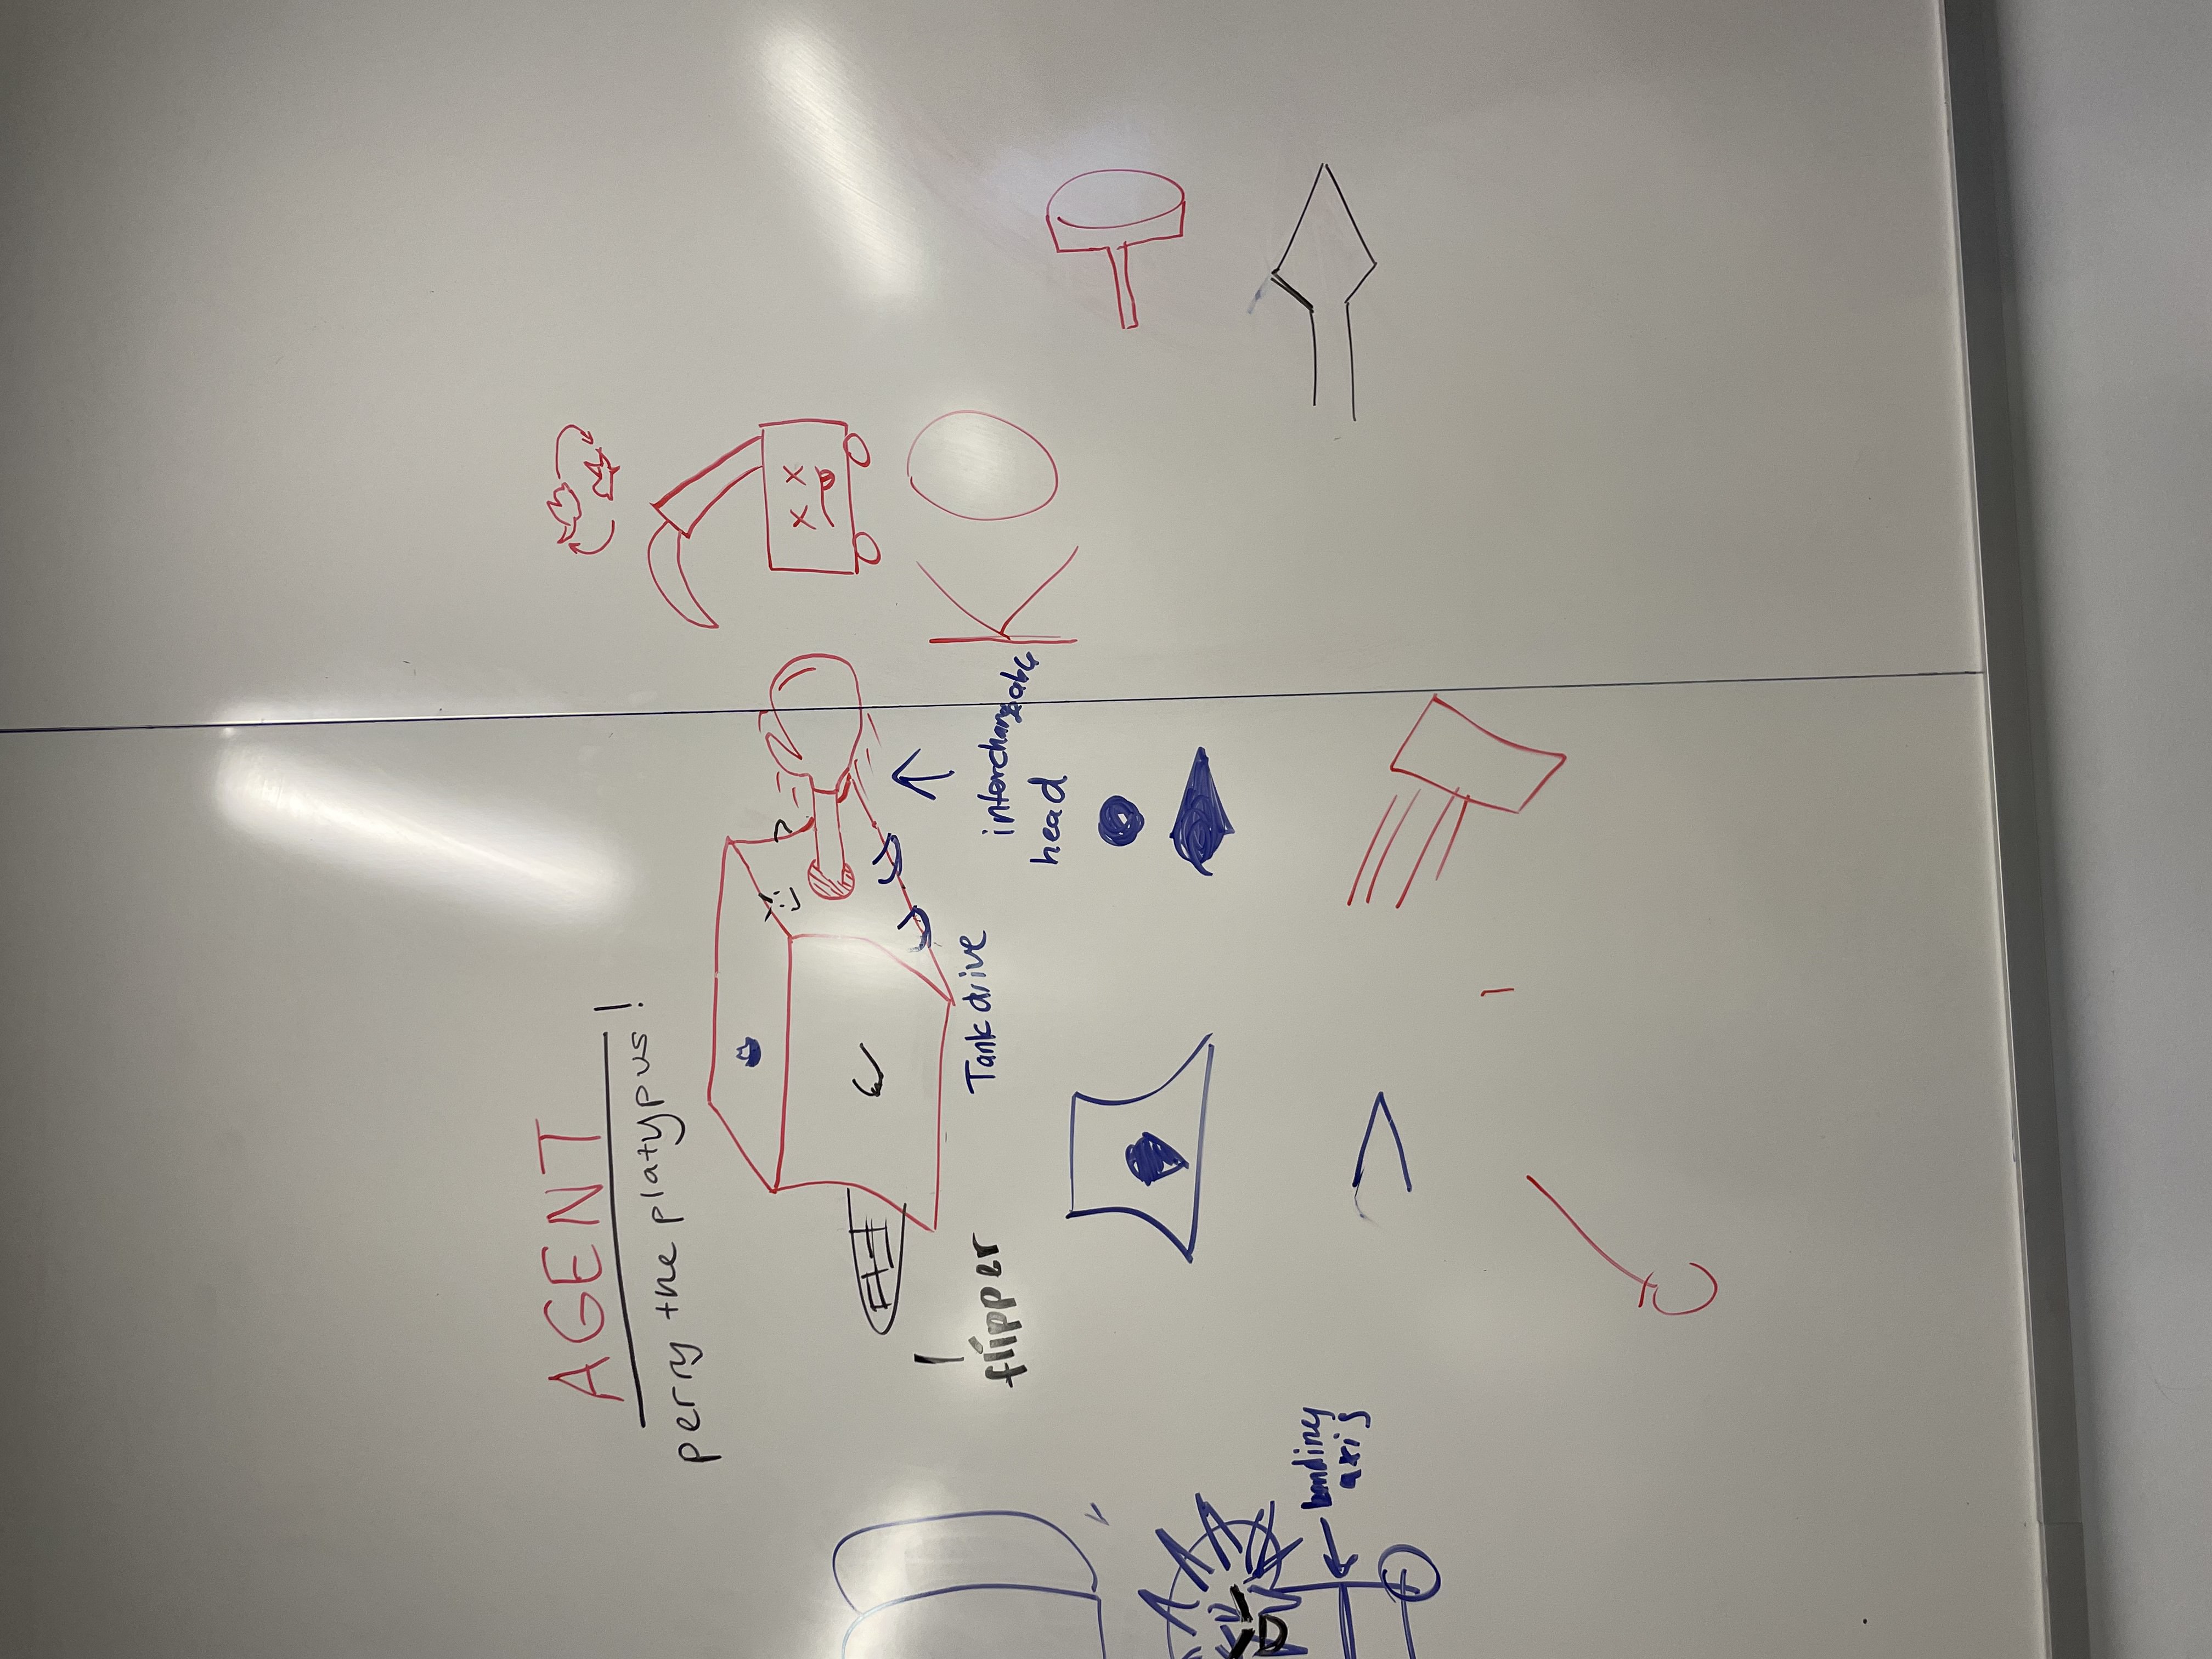 AGENT
perry the platypus!
flipper
Tank drive
interchangeable
head
KO
bending
axis